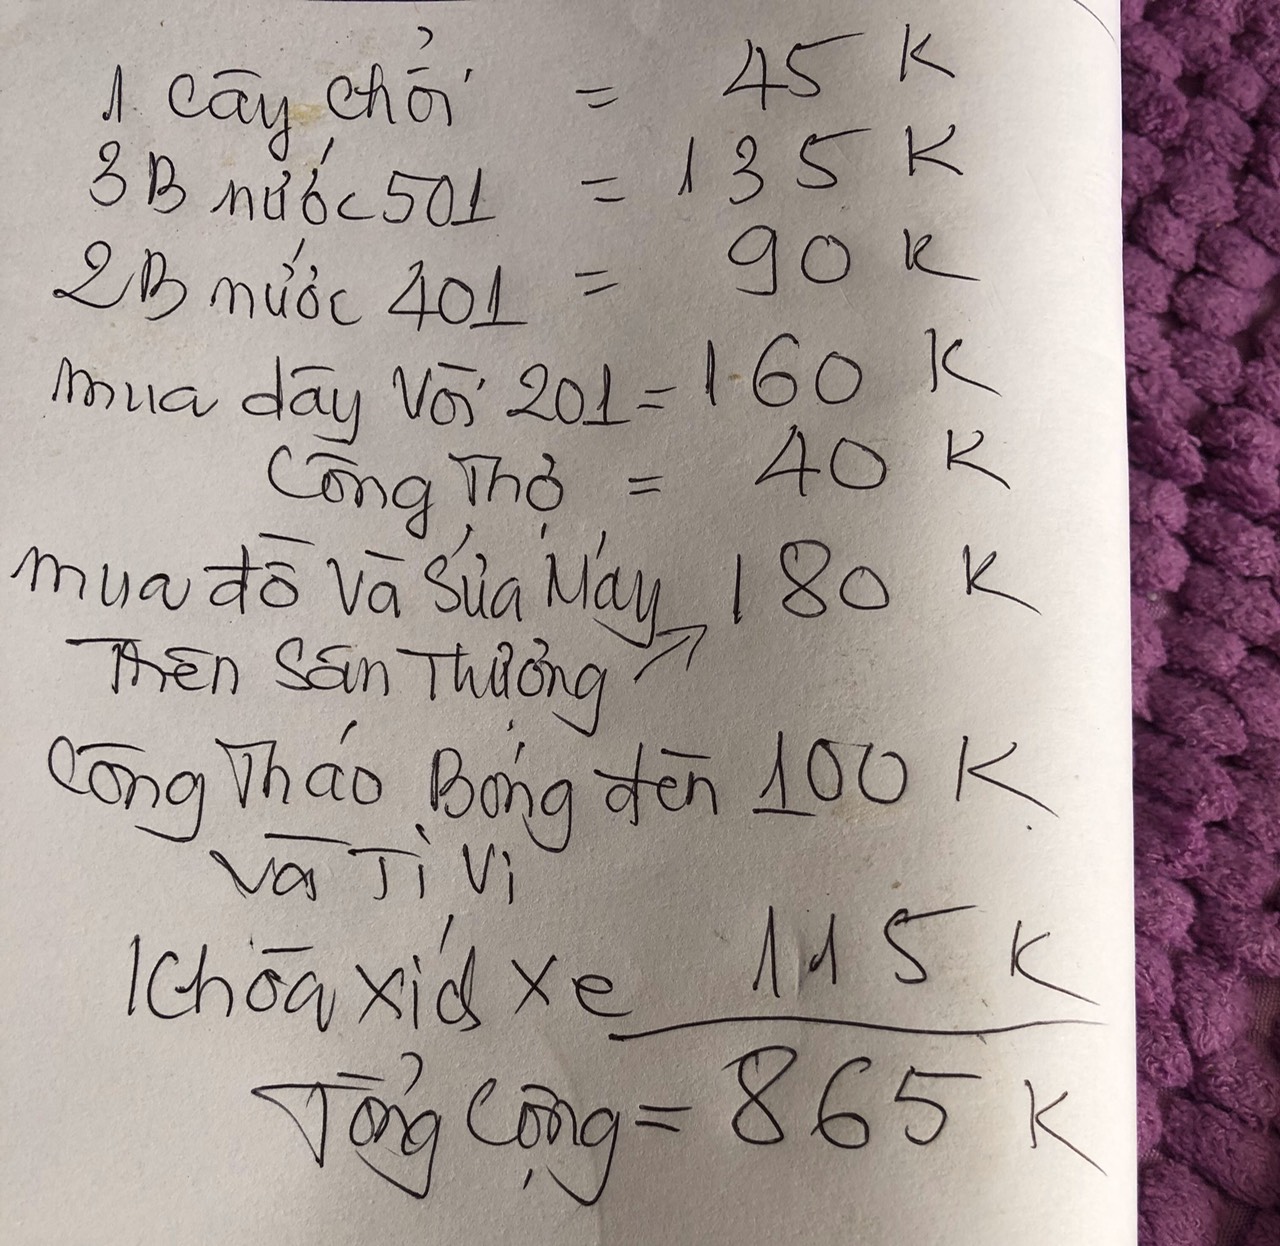 1 cây chổi = 45 K
3B nước 501 = 135 K
2B nước 401 = 90 K
mua dây Vòi 201 = 160 K
Công Thợ = 40 K
mua đồ Và Sửa Máy 180 K
Trên Sân Thượng
Công Tháo Bóng đèn 100 K
Và Ti Vi
Khóa xíd xe 115 K
Tổng Cộng = 865 K